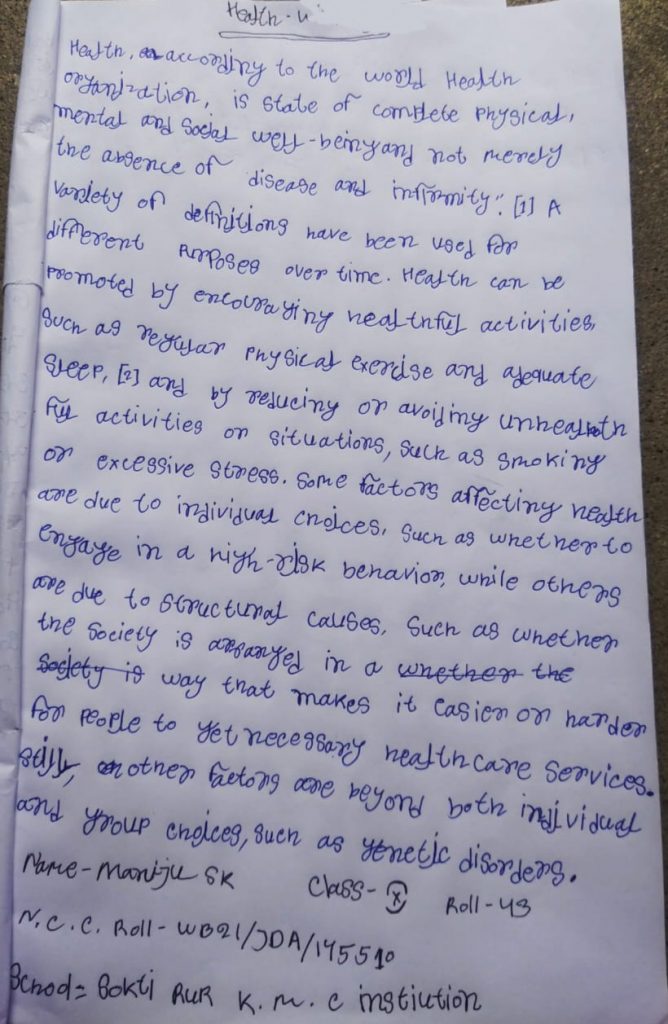 Health - u
Health, according to the world Health
organization, is state of complete physical,
mental and social well-being and not merely
the absence of disease and infirmity". [1] A
variety of definitions have been used for
different purposes over time. Health can be
promoted by encouraging healthful activities,
such as regular physical exercise and adequate
sleep, [2] and by reducing or avoiding unhealth
ful activities or situations, such as smoking
or excessive stress. some factors affecting health
are due to individual choices, such as whether to
engage in a high-risk behavior, while others
are due to structural causes, such as whether
the society is arranged in a whether the
society is way that makes it easier or harder
for people to get necessary healthcare services.
still, other factors are beyond both individual
and group choices, such as genetic disorders.
Name - Maniju SK Class - X Roll - 43
N.C.C. Roll - WB21/JDA/145510
School = Bokti PUR K.M.C instiution